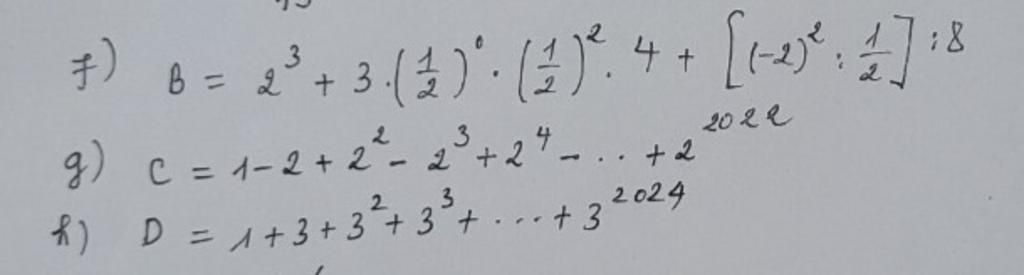 f) B = 2³ + 3.(1/2)⁰ . (1/2)². 4 + [(-2)² : 1/2] : 8
g) C = 1 - 2 + 2² - 2³ + 2⁴ - ... + 2²⁰²²
h) D = 1 + 3 + 3² + 3³ + ... + 3²⁰²⁴